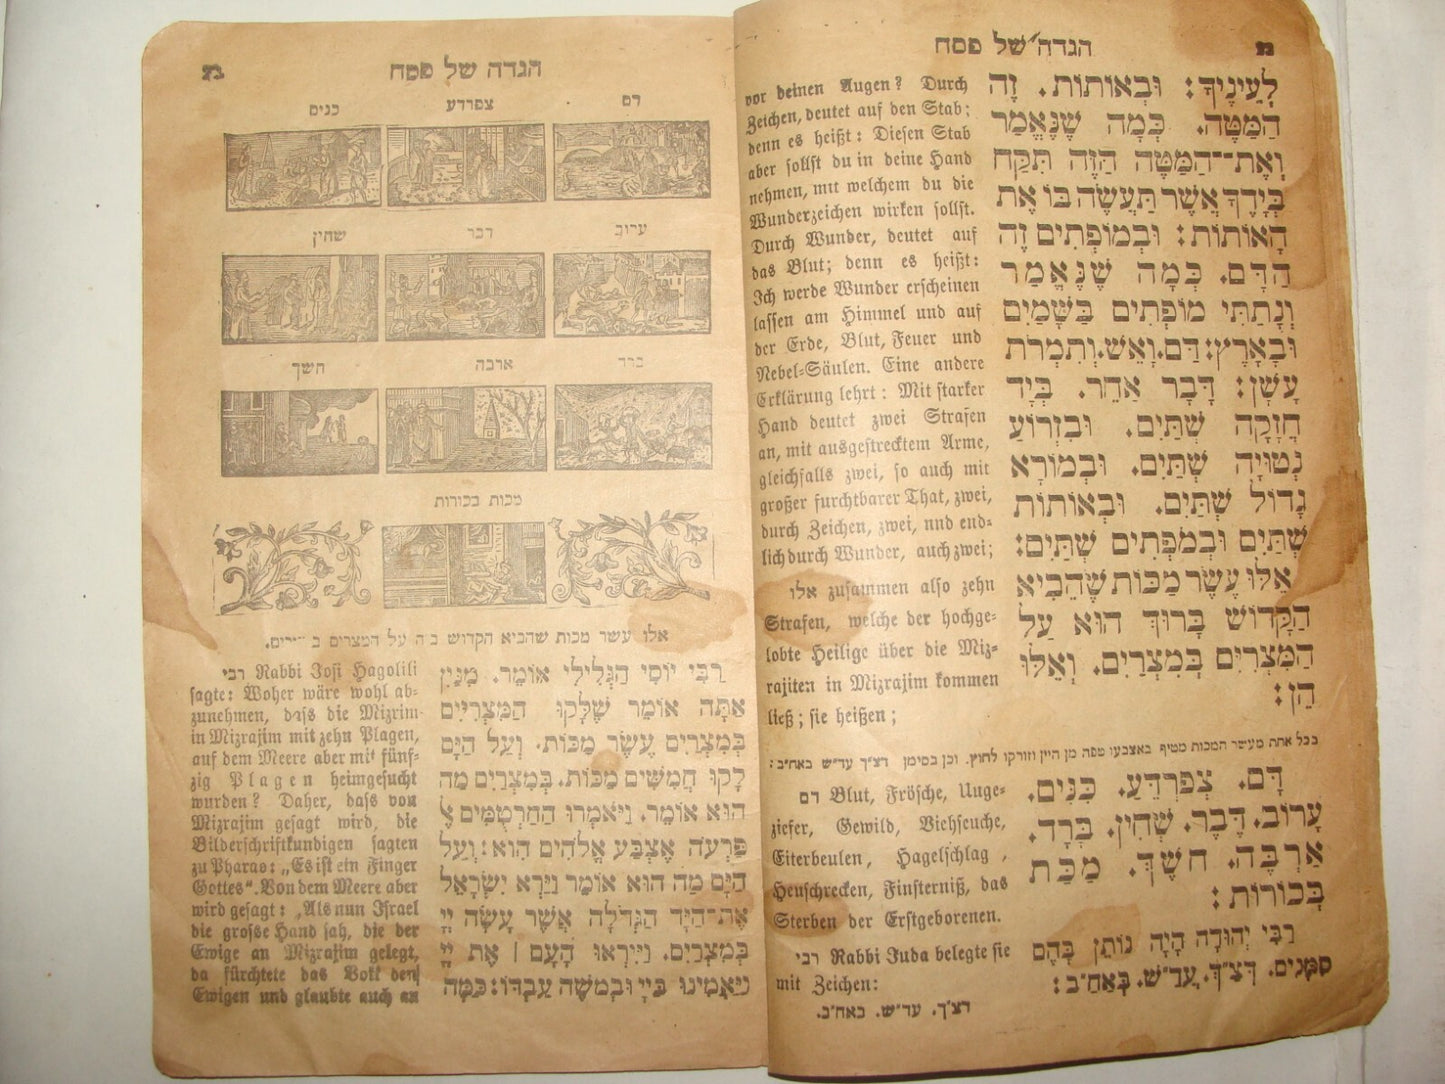 הגדה של פסח
לְעֵינֶיךָ: וּבְאוֹתוֹת. זֶה
הַמַּטֶּה. כְּמָה שֶׁנֶּאֱמַר
וְאֶת־הַמַּטֶּה הַזֶּה תִּקַּח
בְּיָדֶךָ אֲשֶׁר תַּעֲשֶׂה בּוֹ אֶת
הָאוֹתוֹת: וּבְמוֹפְתִים זֶה
הַדָּם. כְּמָה שֶׁנֶּאֱמַר
וְנָתַתִּי מוֹפְתִים בַּשָּׁמַיִם
וּבָאָרֶץ: דָּם. וָאֵשׁ. וְתִמְרֹת
עָשָׁן: דָּבָר אַחֵר. בְּיָד
חֲזָקָה שְׁתַּיִם. וּבִזְרוֹעַ
נְטוּיָה שְׁתַּיִם. וּבְמוֹרָא
גָדוֹל שְׁתַּיִם. וּבְאוֹתוֹת
שְׁתַּיִם וּבְמֹפְתִים שְׁתַּיִם:
אֵלּוּ עֶשֶׂר מַכּוֹת שֶׁהֵבִיא
הַקָּדוֹשׁ בָּרוּךְ הוּא עַל
הַמִּצְרִיִּם בְּמִצְרַיִם. וְאֵלּוּ
הֵן:
vor deinen Augen? Durch
Zeichen, deutet auf den Stab;
denn es heißt: Diesen Stab
aber sollst du in deine Hand
nehmen, mit welchem du die
Wunderzeichen wirken sollst.
Durch Wunder, deutet auf
das Blut; denn es heißt:
Ich werde Wunder erscheinen
lassen am Himmel und auf
der Erde, Blut, Feuer und
Nebel-Säulen. Eine andere
Erklärung lehrt: Mit starker
Hand deutet zwei Strafen
an, mit ausgestrecktem Arme,
gleichfalls zwei, so auch mit
großer furchtbarer That, zwei,
durch Zeichen, zwei, nnd end-
lich durch Wunder, auch zwei;
אלו zusammen also zehn
Strafen, welche der hochge-
lobte Heilige über die Miz-
rajiten in Mizrajim kommen
ließ; sie heißen;
בכל אחת מעשר המכות מטיף באצבעו טפה מן היין וזורקו לחוץ. וכן בסימן דצ"ך עד"ש באח"ב:
דָּם. צְפַרְדֵּעַ. כִּנִּים.
עָרוֹב. דֶּבֶר. שְׁחִין. בָּרָד.
אַרְבֶּה. חשֶׁךְ. מַכַּת
בְּכוֹרוֹת:
רַבִּי יְהוּדָה הָיָה נוֹתֵן בָּהֶם
סִמָּנִים. דְּצַ"ךְ. עֲדַ"שׁ. בְּאַחַ"ב:
דם Blut, Frösche, Unge-
ziefer, Gewild, Viehseuche,
Eiterbeulen, Hagelschlag,
Heuschrecken, Finsterniß, das
Sterben der Erstgeborenen.
רבי Rabbi Juda belegte sie
mit Zeichen:
דצ"ך. עד"ש. באח"ב.
הגדה של פסח
דם צפרדע כנים
ערוב דבר שחין
ברד ארבה חשך
מכות בכורות
אלו עשר מכות שהביא הקדוש ב"ה על המצרים
רַבִּי יוֹסֵי הַגְּלִילִי אוֹמֵר. מִנַּיִן
אַתָּה אוֹמֵר שֶׁלָּקוּ הַמִּצְרִיִּים
בְּמִצְרַיִם עֶשֶׂר מַכּוֹת. וְעַל הַיָּם
לָקוּ חֲמִשִּׁים מַכּוֹת. בְּמִצְרַיִם מַה
הוּא אוֹמֵר. וַיֹּאמְרוּ הַחַרְטֻמִּים אֶ
פַּרְעֹה אֶצְבַּע אֱלֹהִים הִוא: וְעַל
הַיָּם מַה הוּא אוֹמֵר וַיַּרְא יִשְׂרָאֵל
אֶת־הַיָּד הַגְּדֹלָה אֲשֶׁר עָשָׂה יְיָ
בְּמִצְרַיִם. וַיִּירְאוּ הָעָם אֶת יְיָ
וַיַּאֲמִינוּ בַּייָ וּבְמשֶׁה עַבְדּוֹ: כַּמָּה
רבי Rabbi Josi Hagolili
sagte: Woher wäre wohl ab-
zunehmen, dass die Mizrim
in Mizrajim mit zehn Plagen,
auf dem Meere aber mit fünf-
zig Plagen heimgesucht
wurden? Daher, dass von
Mizrajim gesagt wird, die
Bilderschriftkundigen sagten
zu Pharao: „Es ist ein Finger
Gottes“. Von dem Meere aber
wird gesagt: „Als nun Israel
die grosse Hand sah, die der
Ewige an Mizrajim gelegt,
da fürchtete das Volk den
Ewigen und glaubte auch an